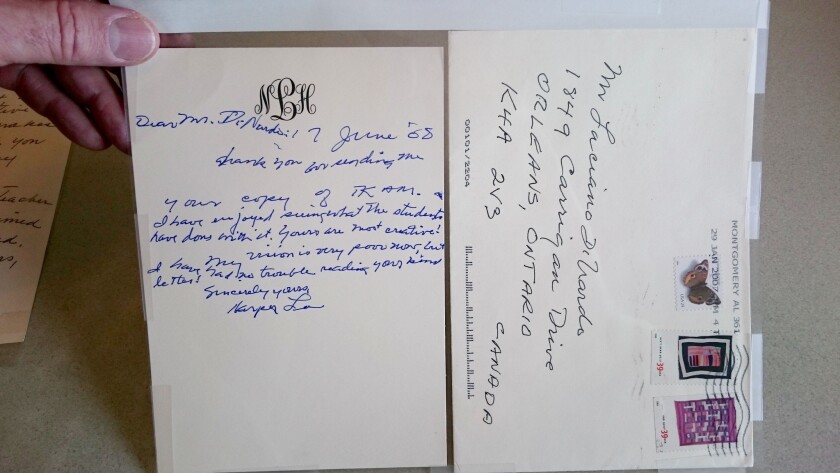 NLH
Dear Mr. DiNardo: 17 June '08
Thank you for sending me
your copy of TKAM.
I have enjoyed seeing what the students
have done with it. Yours are most creative!
My vision is very poor now, but
I have had no trouble reading your kind
letter!
Sincerely yours
Harper Lee
Mr Luciano DiNardo
1849 Carrigan Drive
ORLEANS, ONTARIO
KHA 2V3
CANADA
MONTGOMERY AL 361
29 JAN 2007 PM 4 T
39
39
you
Teacher